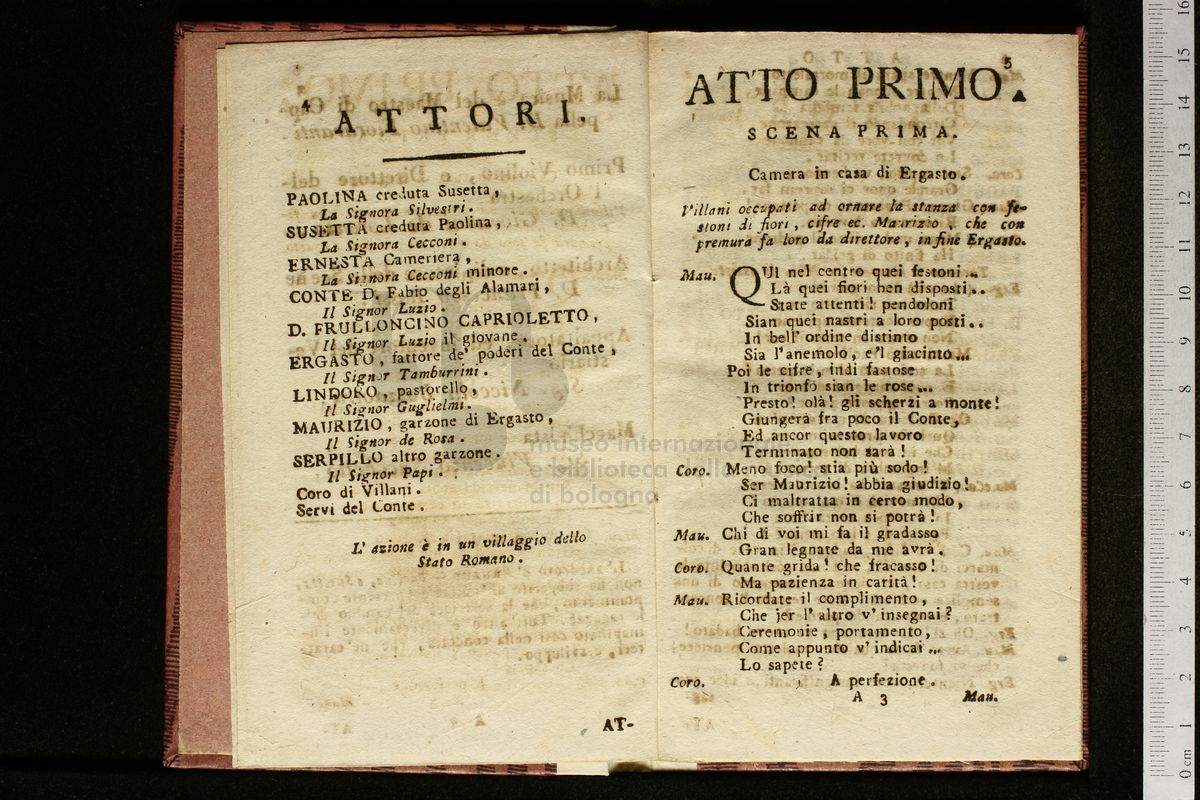 4
ATTORI.
PAOLINA creduta Susetta,
La Signora Silvestri.
SUSETTA creduta Paolina,
La Signora Cecconi.
ERNESTA Cameriera,
La Signora Cecconi minore.
CONTE D. Fabio degli Alamari,
Il Signor Luzio.
D. FRULLONCINO CAPRIOLETTO,
Il Signor Luzio il giovane.
ERGASTO, fattore de' poderi del Conte,
Il Signor Tamburrini.
LINDORO, pastorello,
Il Signor Guglielmi.
MAURIZIO, garzone di Ergasto,
Il Signor de Rosa.
SERPILLO altro garzone.
Il Signor Papi.
Coro di Villani.
Servi del Conte.
L' azione è in un villaggio dello
Stato Romano.
AT-
5
ATTO PRIMO.
SCENA PRIMA.
Camera in casa di Ergasto.
Villani occupati ad ornare la stanza con fe-
stoni di fiori, cifre ec. Maurizio, che con
premura fa loro da direttore, in fine Ergasto.
Mau. QUI nel centro quei festoni...
Là quei fiori ben disposti..
State attenti! pendoloni
Sian quei nastri a loro posti..
In bell' ordine distinto
Sia l'anemolo, e'l giacinto...
Poi le cifre, indi fastose
In trionfo sian le rose...
Presto! olà! gli scherzi a monte!
Giungerà fra poco il Conte,
Ed ancor questo lavoro
Terminato non sarà!
Coro. Meno foco! stia più sodo!
Ser Maurizio! abbia giudizio!
Ci maltratta in certo modo,
Che soffrir non si potrà!
Mau. Chi di voi mi fa il gradasso
Gran legnate da me avrà.
Coro. Quante grida! che fracasso!
Ma pazienza in carità!
Mau. Ricordate il complimento,
Che jer l' altro v' insegnai?
Ceremonie, portamento,
Come appunto v' indicai...
Lo sapete?
Coro. A perfezione.
A 3 Mau.
museo internazionale
e biblioteca della
di bologna
0 cm 1 2 3 4 5 6 7 8 9 10 11 12 13 14 15 16